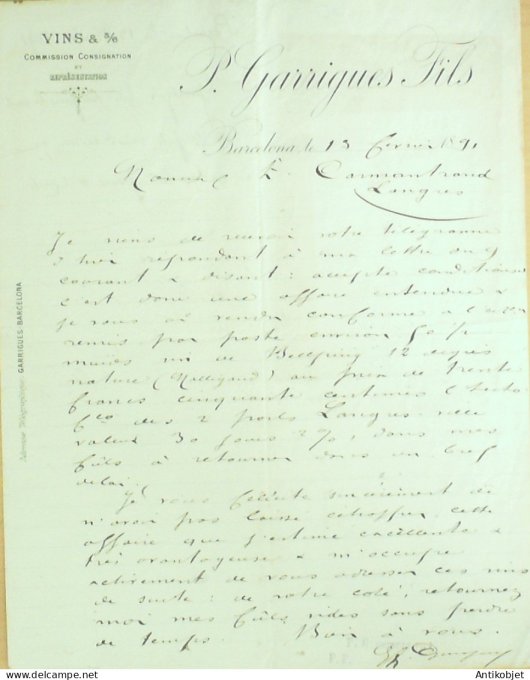 VINS & S/S
COMMISSION CONSIGNATION
ET
REPRÉSENTATION
P. Garrigues Fils
Barcelona, le 13 février 1891
Monsieur E. Cormontrand
Langres
Je viens de recevoir votre télégramme
d'hier répondant à ma lettre du 9
courant & disant: accepte conditions
c'est donc une affaire entendue &
je vous ai vendu conforme à l'
remis par poste environ
muids vin de 12 degrés
nature au prix de trente
francs cinquante centimes l'hecto
fco des 2 ports Langres
valeur 30 jours 2%, dans mes
fûts à retourner dans un bref
délai.
Je vous félicite sincèrement de
n'avoir pas laissé échapper cette
affaire que j'estime excellente &
très avantageuse & m'occupe
activement de vous adresser ces vins
de suite: de votre coté, retournez
moi mes fûts vides sans perdre
de temps. Bien à vous.
Adresse Télégraphique: GARRIGUES-BARCELONA
© Antikobjet